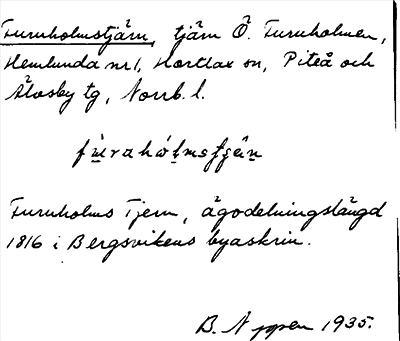 Furuholmstjärn, tjärn Ö. Furuholmen,
Hemlunda nr 1, Hortlax sn, Piteå och
Älvsby tg, Norrb. l.
Furuholms Tjern, ägodelningslängd
1816 i Bergsvikens byaskrin.
B. Nyppen 1935.